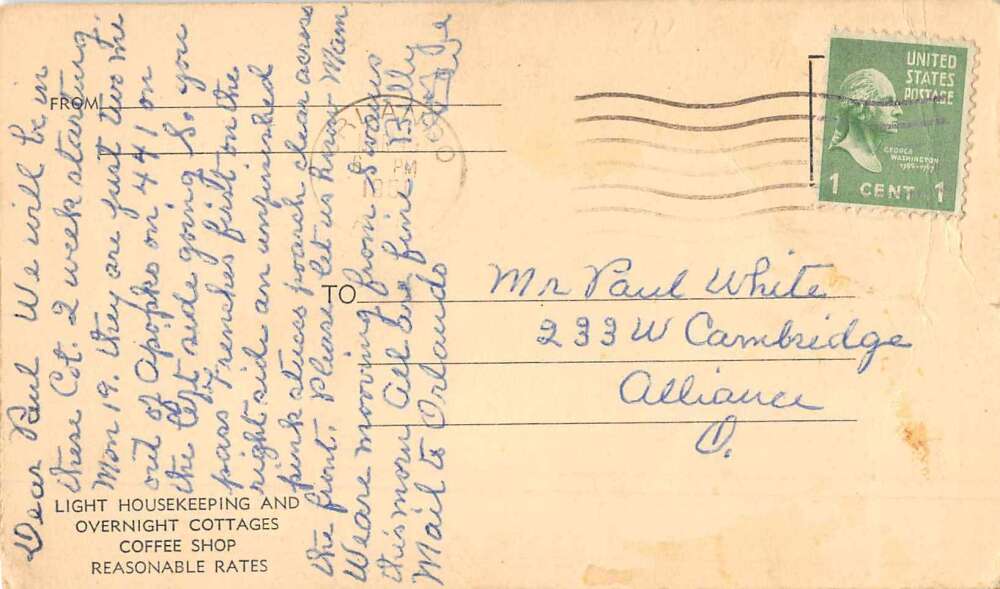 Dear Paul We will be in
these Cot. 2 week starting
Mon 19. they are just two mi
out of Apopka on 441 on
the left side going S. you
pass Trenches first on the
right side an unfinished
pink stucco poarch clear across
the front. Please let us know Mam
We are mooving from Swans
this morn All are fine Billy
Mail to Orlando
FROM
ORLANDO
PM
UNITED
STATES
POSTAGE
GEORGE
WASHINGTON
1789-1797
1 CENT 1
TO
Mr Paul White
233 W Cambridge
Alliance
O.
LIGHT HOUSEKEEPING AND
OVERNIGHT COTTAGES
COFFEE SHOP
REASONABLE RATES